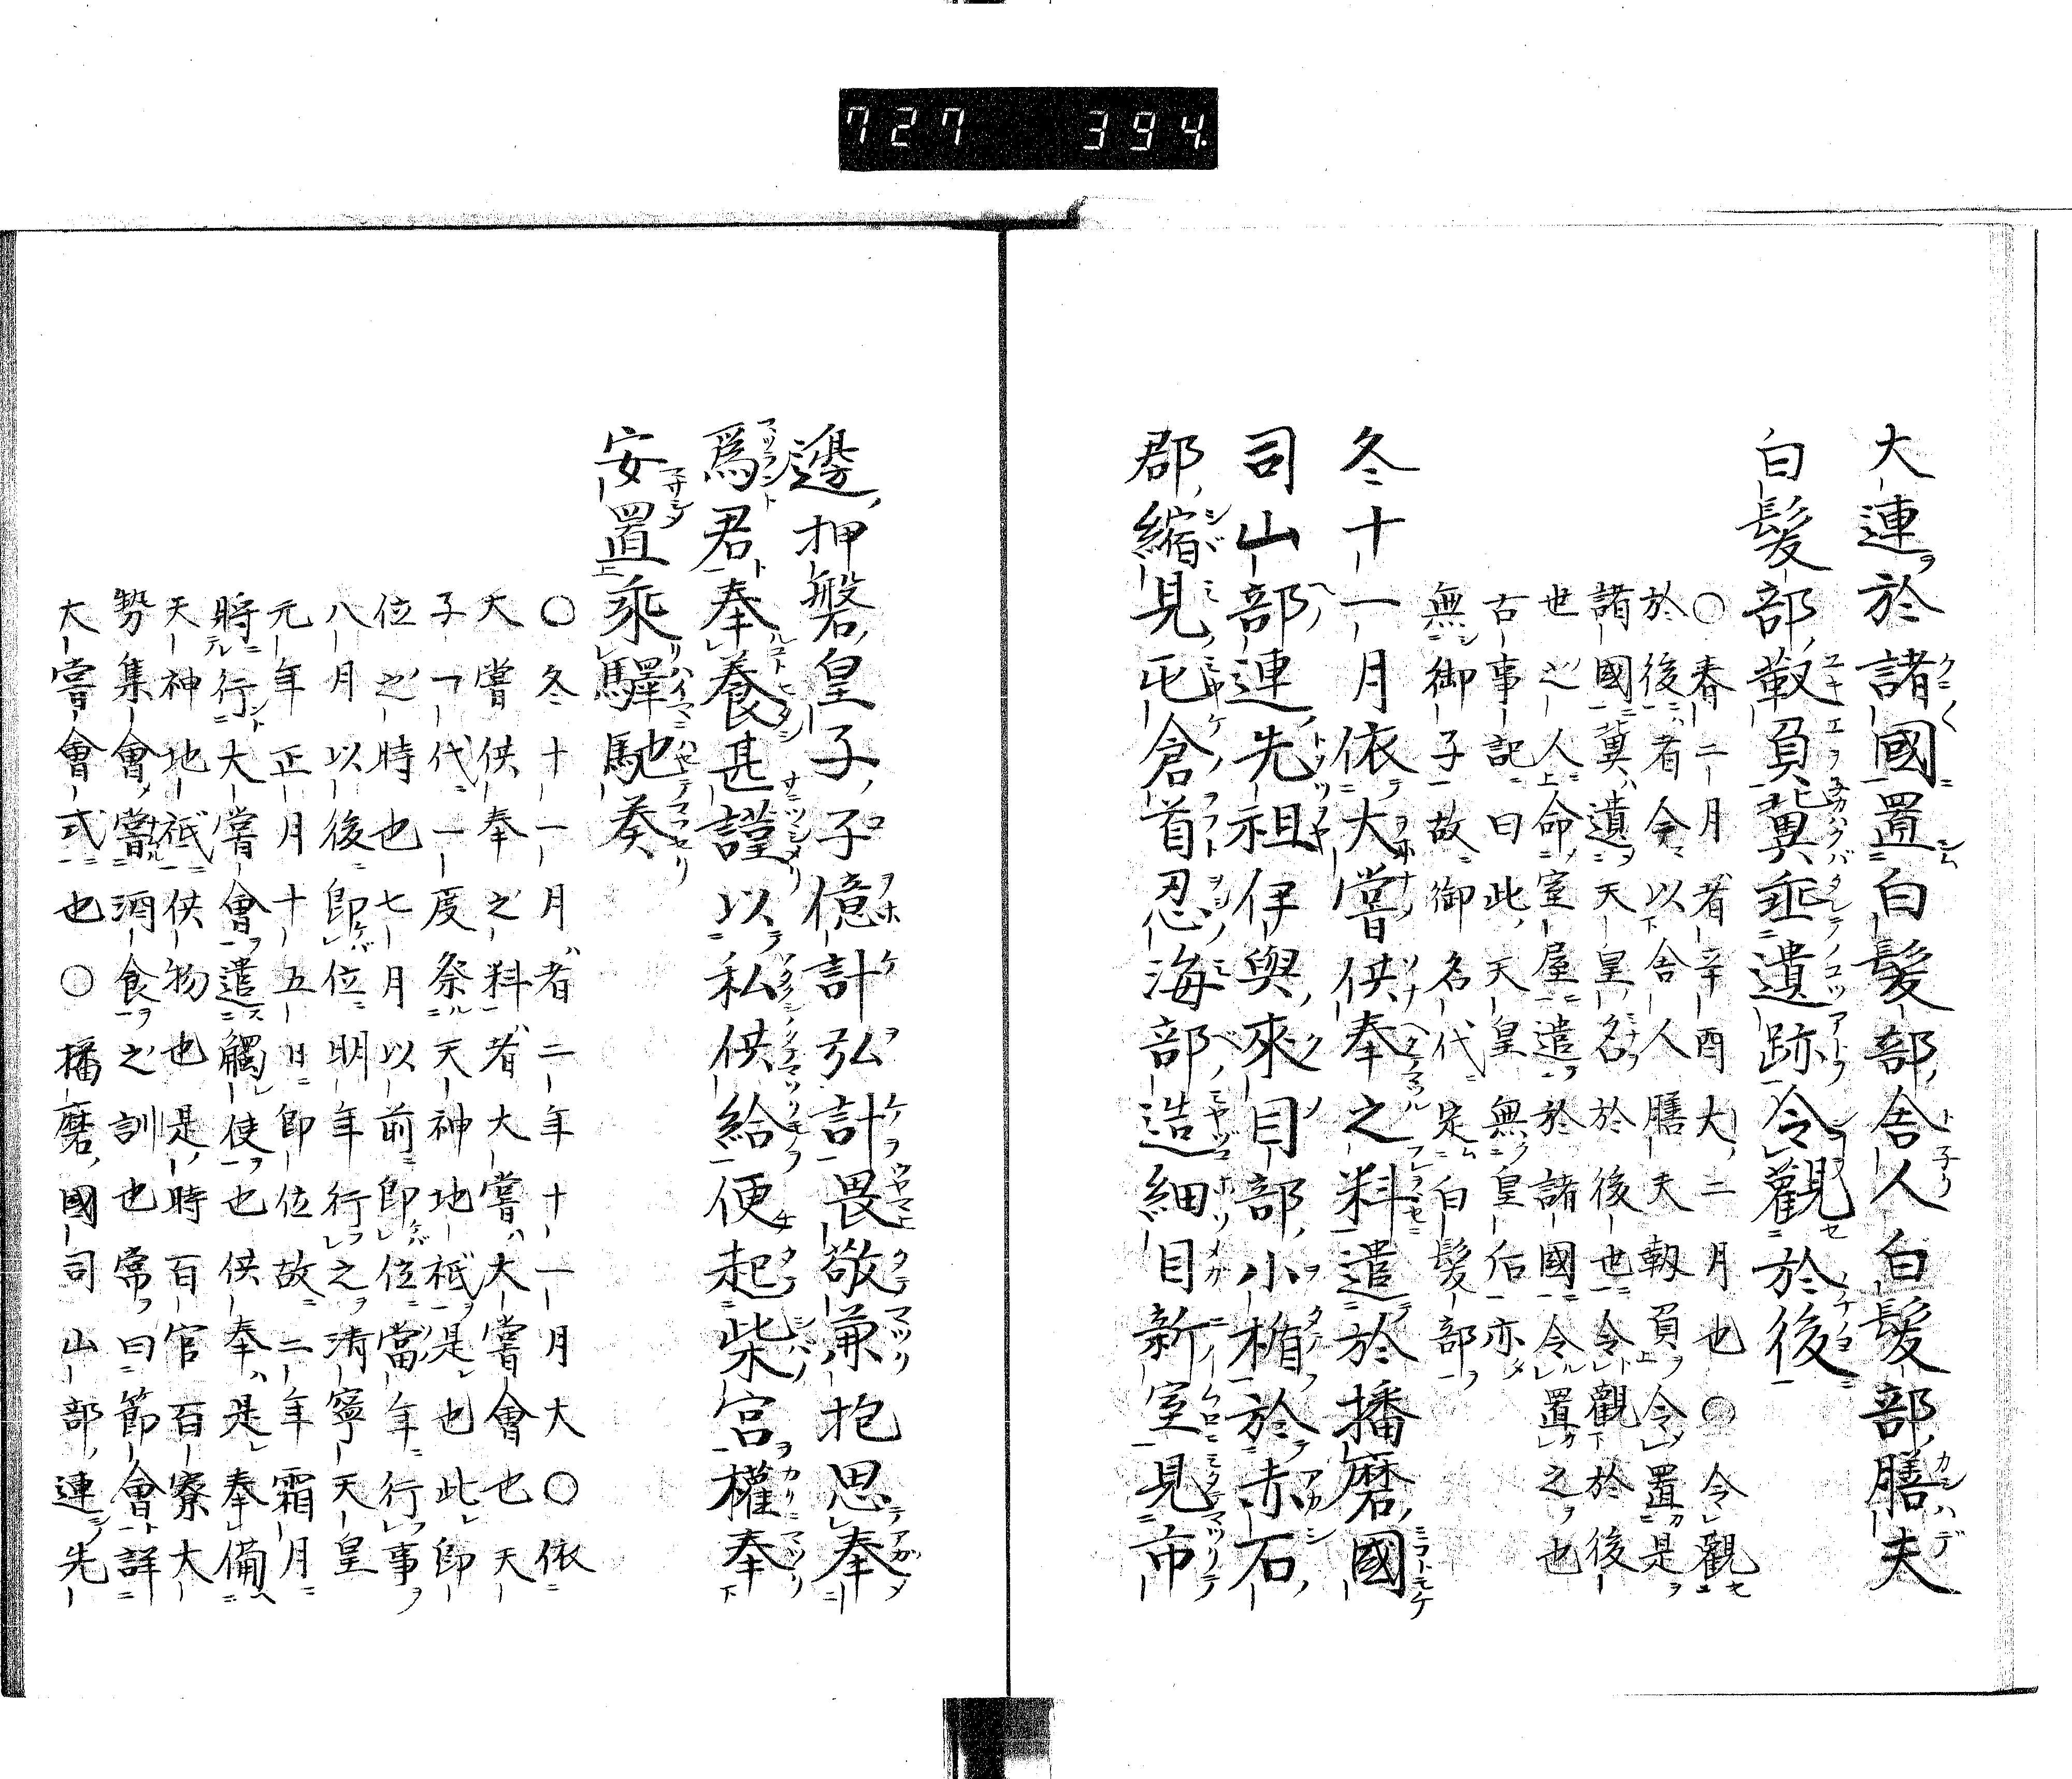 727 394
大連於諸國置白髮部舍人白髮部膳夫
白髮部靫負冀垂遺跡令觀於後
○春二月者辛酉大二月也○令觀
於後者令以舍人膳夫靱負令置是
諸國冀遺天皇名於後世令觀於後
世之人命室屋遣於諸國令置之也
古事記曰此天皇無皇后亦
無御子故御名代定白髮部
冬十一月依大嘗供奉之料遣於播磨國
司山部連先祖伊與來目部小楯於赤石
郡縮見屯倉首忍海部造細目新室見市
邊押磐皇子子億計弘計畏敬兼抱思奉
爲君奉養甚謹以私供給便起柴宮權奉
安置乘驛馳奏
○冬十一月者二年十一月大○依
大嘗供奉之料者大嘗大嘗會也天
子一代一度祭天神地祇是也此即
位之時也七月以前即位當年行事
八月以後即位明年行之淸寧天皇
元年正月十五日即位故二年霜月
將行大嘗會遣觸使也供奉是奉備
天神地祇供物也是時百官百寮大
勢集會嘗酒食之訓也常曰節會詳
大嘗會式也○播磨國司山部連先